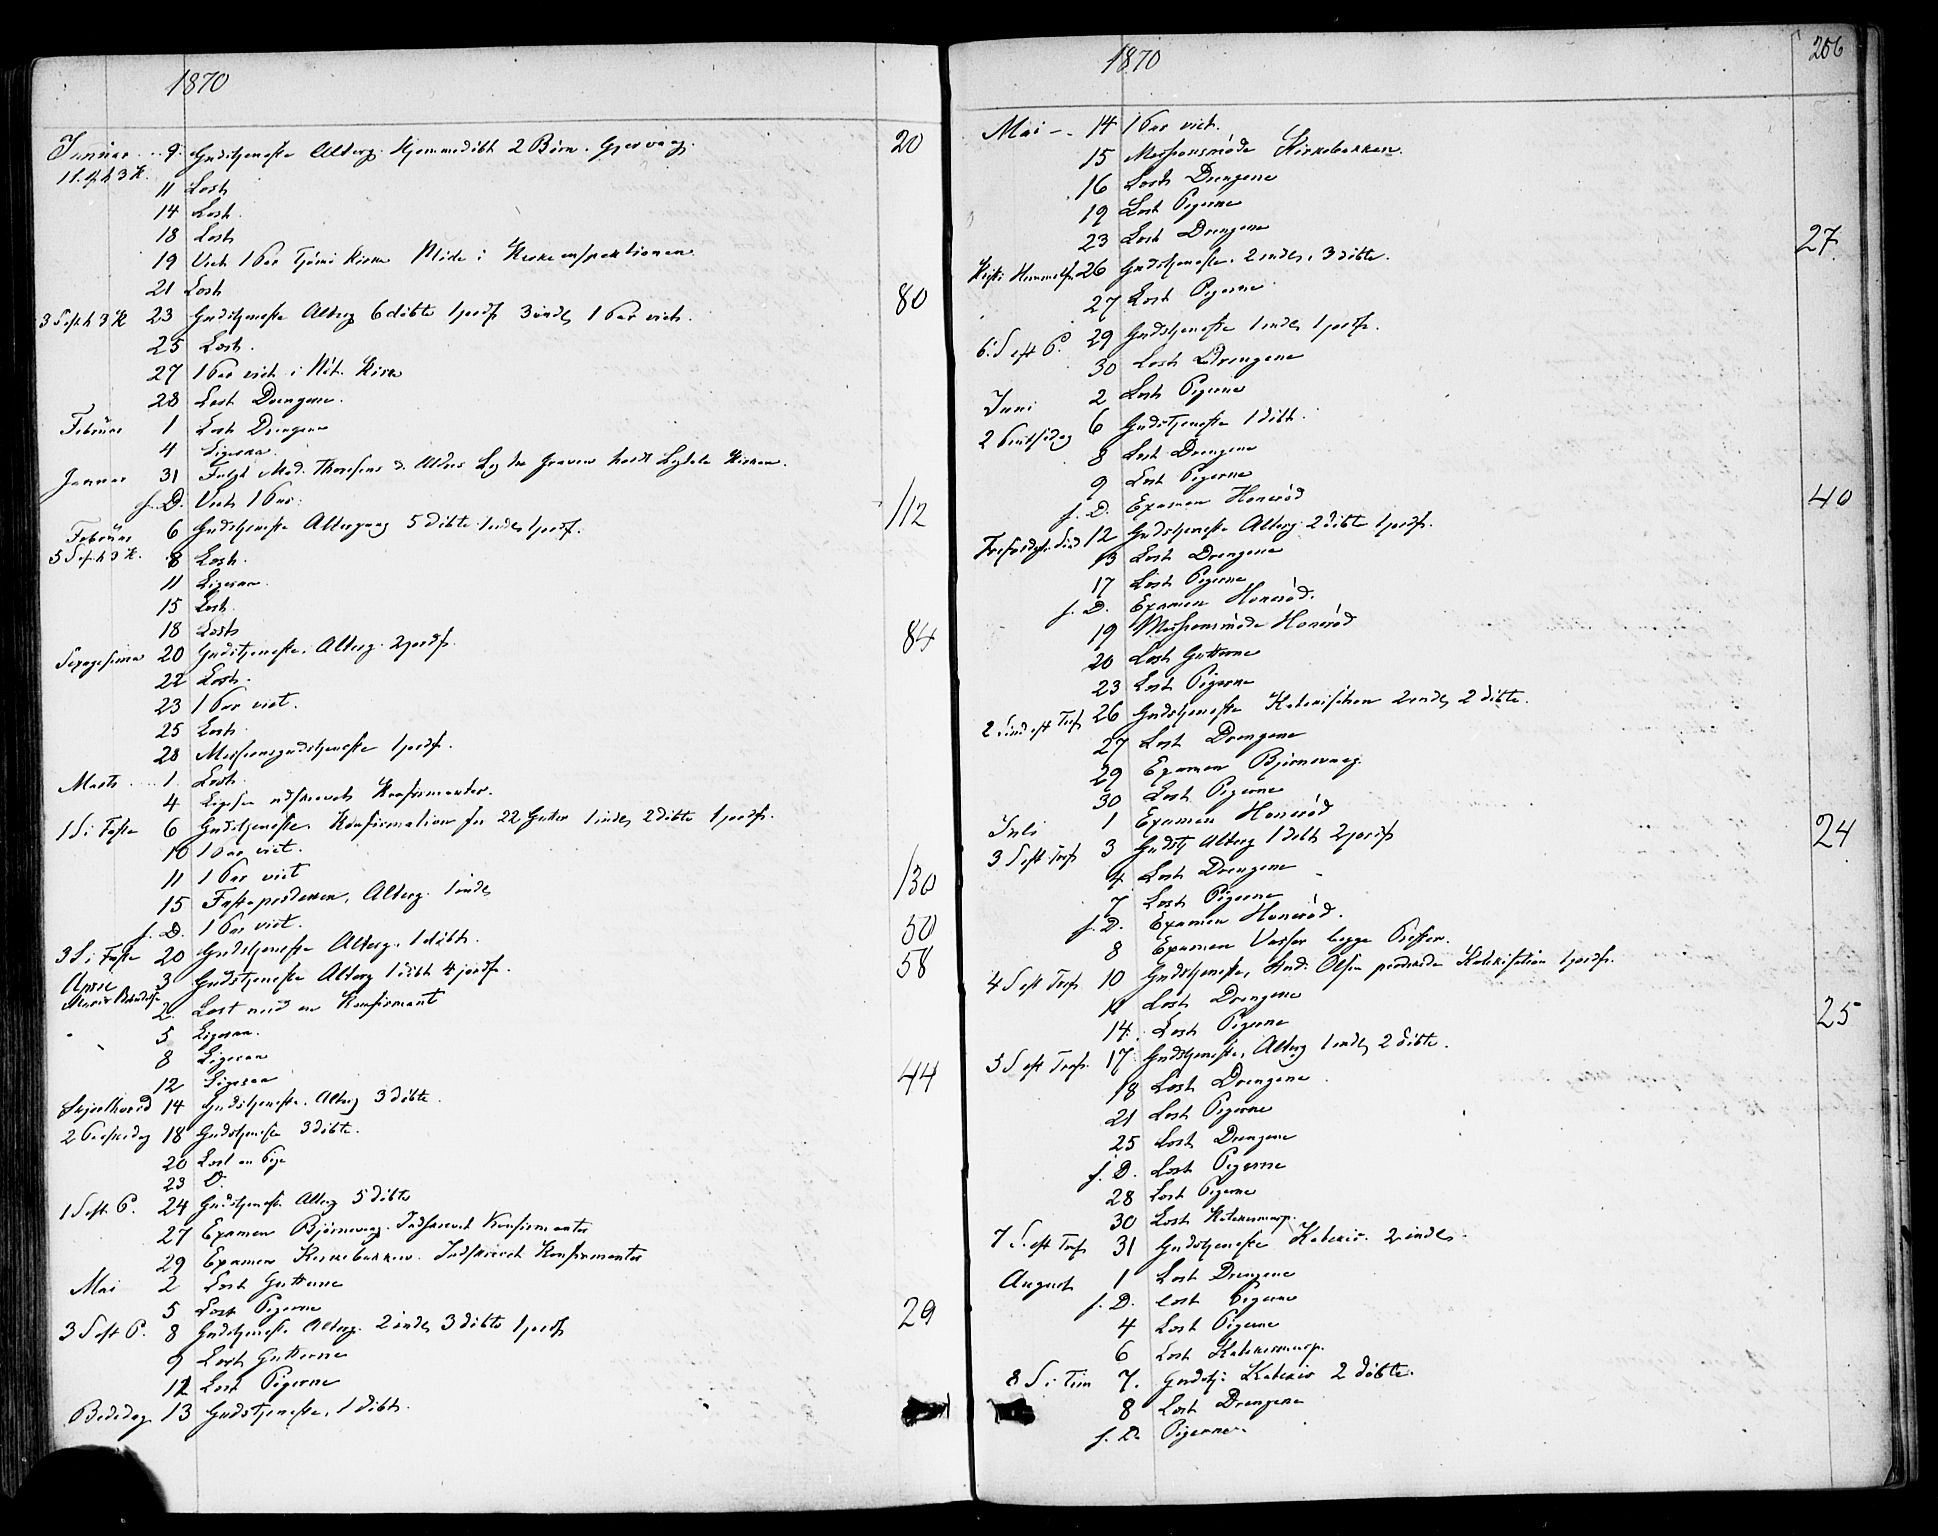 1870
Januar 9. Gudstjeneste Altberg. Hjemmedøbt 2 Børn. Gjervaag. 20
1 S. e. h 3 K.
11 Læst
14 Læst.
18 Læst
19 Viet 1 Par Tjømø Kirke Møde i Kirke
21 Læst
3 S e. h 3 K 23 Gudstjeneste Altberg 6 døbte 1 jordf 3 indl, 1 Par viet. 80
25 Læst.
27 1 Par viet i Nøt. Kirke
28 Læst Drengene.
Februar 1 Læst Drengene
4 Pigerne.
Januar 31 Fulgt Mad. Lig Graven holdt Kirken.
s. D. Viet 1 Par. 112
Februar 6 Gudstjeneste Altergang 5 døbte 1 indl, 1 jordf.
5 S. e. h 3 K. 8 Læst.
11 Ligesaa.
15 Læst
18 Læst 84
Sexagesima 20 Gudstjeneste. Altberg. 2 jordf.
22 Læst.
23 1 Par viet.
25 Læst.
28 Missionsgudstjeneste 1 jordf.
Marts 1. Læst.
4 Ligesaa udskrevet Konfirmanter.
1 S i Faste 6 Gudstjeneste. Konfirmation for 22 Gutter 1 indl, 2 døbte 1 jordf.
10 1 Par viet.
11 1 Par viet 130
15 Fasteprædiken, Altberg. 1 indl,
s. D. 1 Par viet. 50
3 S i Faste 20 Gudstjeneste Altberg. 1 døbt. 58
April 3 Gudstjeneste Altberg 1 døbt 4 jordf.
Mariæ Bebudelse
2. Læst med en Konfirmant
5 Ligesaa.
8 Ligesaa
12 Ligesaa 44
Skjærthorsd 14 Gudstjeneste. Altberg 3 døbte.
2 Paaskedag 18 Gudstjeneste 3 døbte.
20 Læst en Pige
23 D.
1 S eft. P. 24 Gudstjeneste Altberg 5 døbte
27 Examen Bjørnevaag. Indskrevet Konfirmanter
29 Examen Kirkebakken. Indskrevet Konfirmanter
Mai 2 Læst Gutterne
5 Læst Pigerne 29
3 S eft P. 8 Gudstjeneste Altberg. 2 indl, 3 døbte 1 jordf
9 Læst Gutterne
12 Læst Pigerne
Bededag 13 Gudstjeneste, 1 døbt.
1870
206
Mai 14 1 Par viet.
15 Missionsmøde Kirkebakken.
16 Læst Drengene
19 Læst Pigerne
23 Læst Drengene 27
Kristi Himmelf. 26 Gudstjeneste. 2 indl, 3 døbte.
27 Læst Pigerne
6 S eft P. 29 Gudstjeneste 1 indl, 1 jordf.
30 Læst Drengene
Juni 2 Læst Pigerne
2 Pintsedag 6 Gudstjeneste 1 døbt.
8 Læst Drengene
9 Læst Pigerne
s. D. Examen Honerød 40
Trefoldigh. Sønd 12 Gudstjeneste Altberg. 2 døbte 1 jordf.
13 Læst Drengene
17 Læst Pigerne
s. D. Examen Honerød.
19 Missionsmøde Honerød
20 Læst Gutterne
23 Læst Pigerne
2 Sønd eft Tref 26 Gudstjeneste Katekisation 2 indl, 2 døbte.
27 Læst Drengene
29 Examen Bjørnevaag.
30 Læst Pigerne
Juli 1 Examen Honerød
3 S eft Tref 3 Gudstj Altberg 1 døbt 2 jordf 24
4 Læst Drengene
7 Læst Pigerne
s. D. Examen Honerød.
8 Examen Vasser begge
4 S eft Tref 10 Gudstjeneste, Stud. Olsen prædikede Katekisation 1 jordf.
11 Læst Drengene
14. Læst Pigerne 25
5 S eft Tref. 17. Gudstjeneste, Altberg 1 indl, 2 døbte.
18 Læst Drengene
21 Læst Pigerne
25 Læst Drengene
s. D. Læst Pigerne
28 Læst Pigerne
30 Læst
7 S. eft Tref 31 Gudstjeneste Katekis. 2 indl.
August 1 Læst Drengene
s. D. Læst Pigerne
4 Læst Pigerne
6 Læst
8 S. i Trin 7. Gudstj: Katekis 2 døbte.
8 Læst Drengene
s. D. Pigerne.